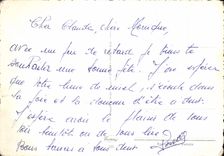 Cher Claude, chère Monique,
avec un peu de retard je viens te
souhaiter une bonne fête. J'ose espérer
que votre lune de miel, s'écoule dans
la joie et la douceur d'être à deux.
J'espère avoir le plaisir de vous
voir bientôt ou de vous lire
bons baisers à vous deux